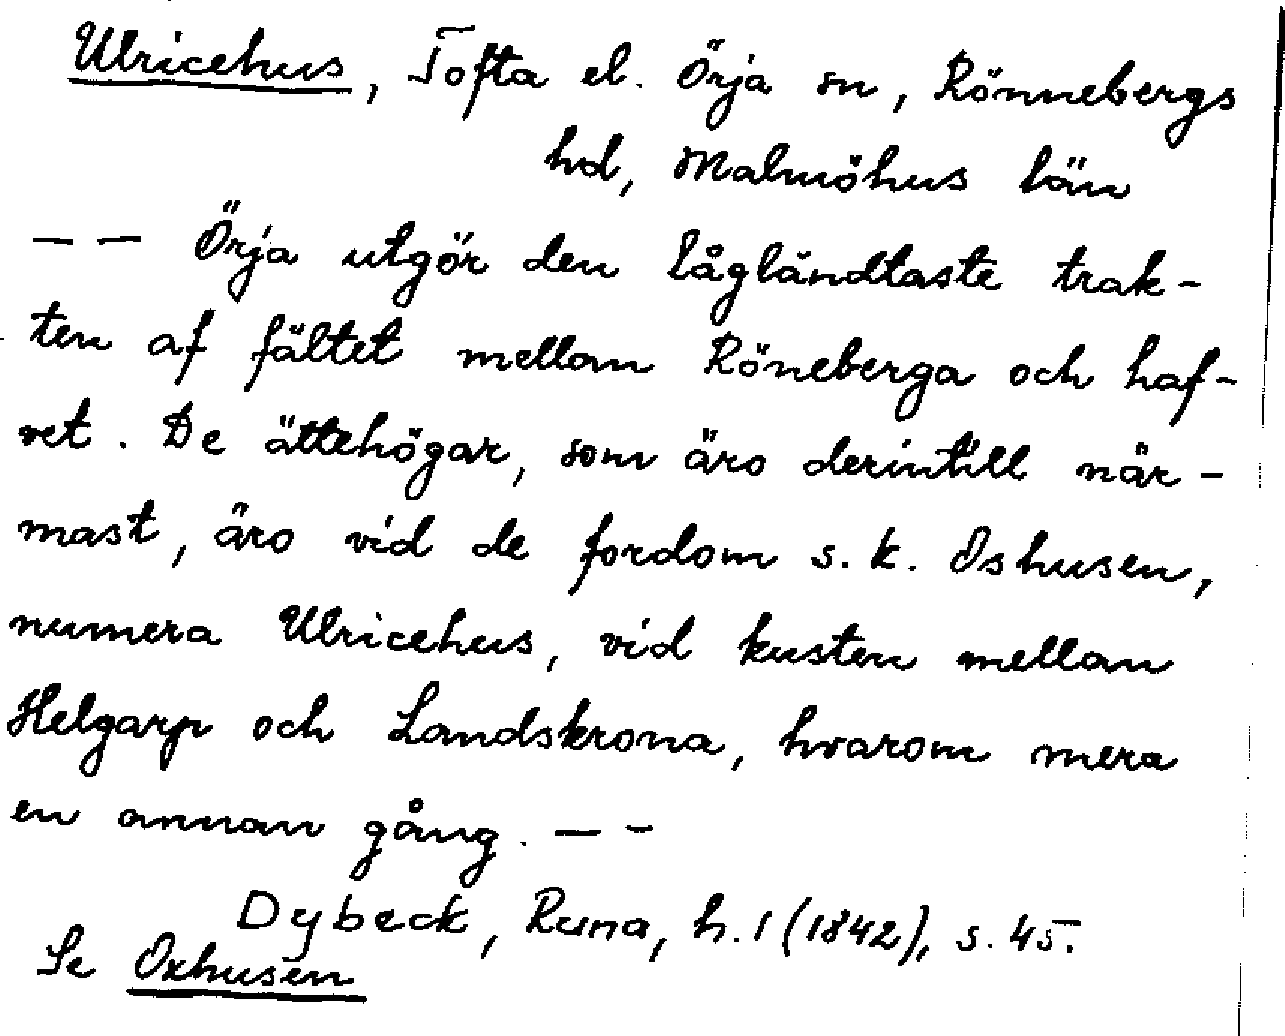 Ulricehus, Tofta el. Örja sn, Rönnebergs
hd, Malmöhus län
— — Örja utgör den lågländtaste trak-
ten af fältet mellan Röneberga och haf-
vet. De ättehögar, som äro derintill när-
mast, äro vid de fordom s. k. Oshusen,
numera Ulricehus, vid kusten mellan
Helgarp och Landskrona, hvarom mera
en annan gång. — -
Dybeck, Runa, h. 1 (1842), s. 45.
Se Oxhusen